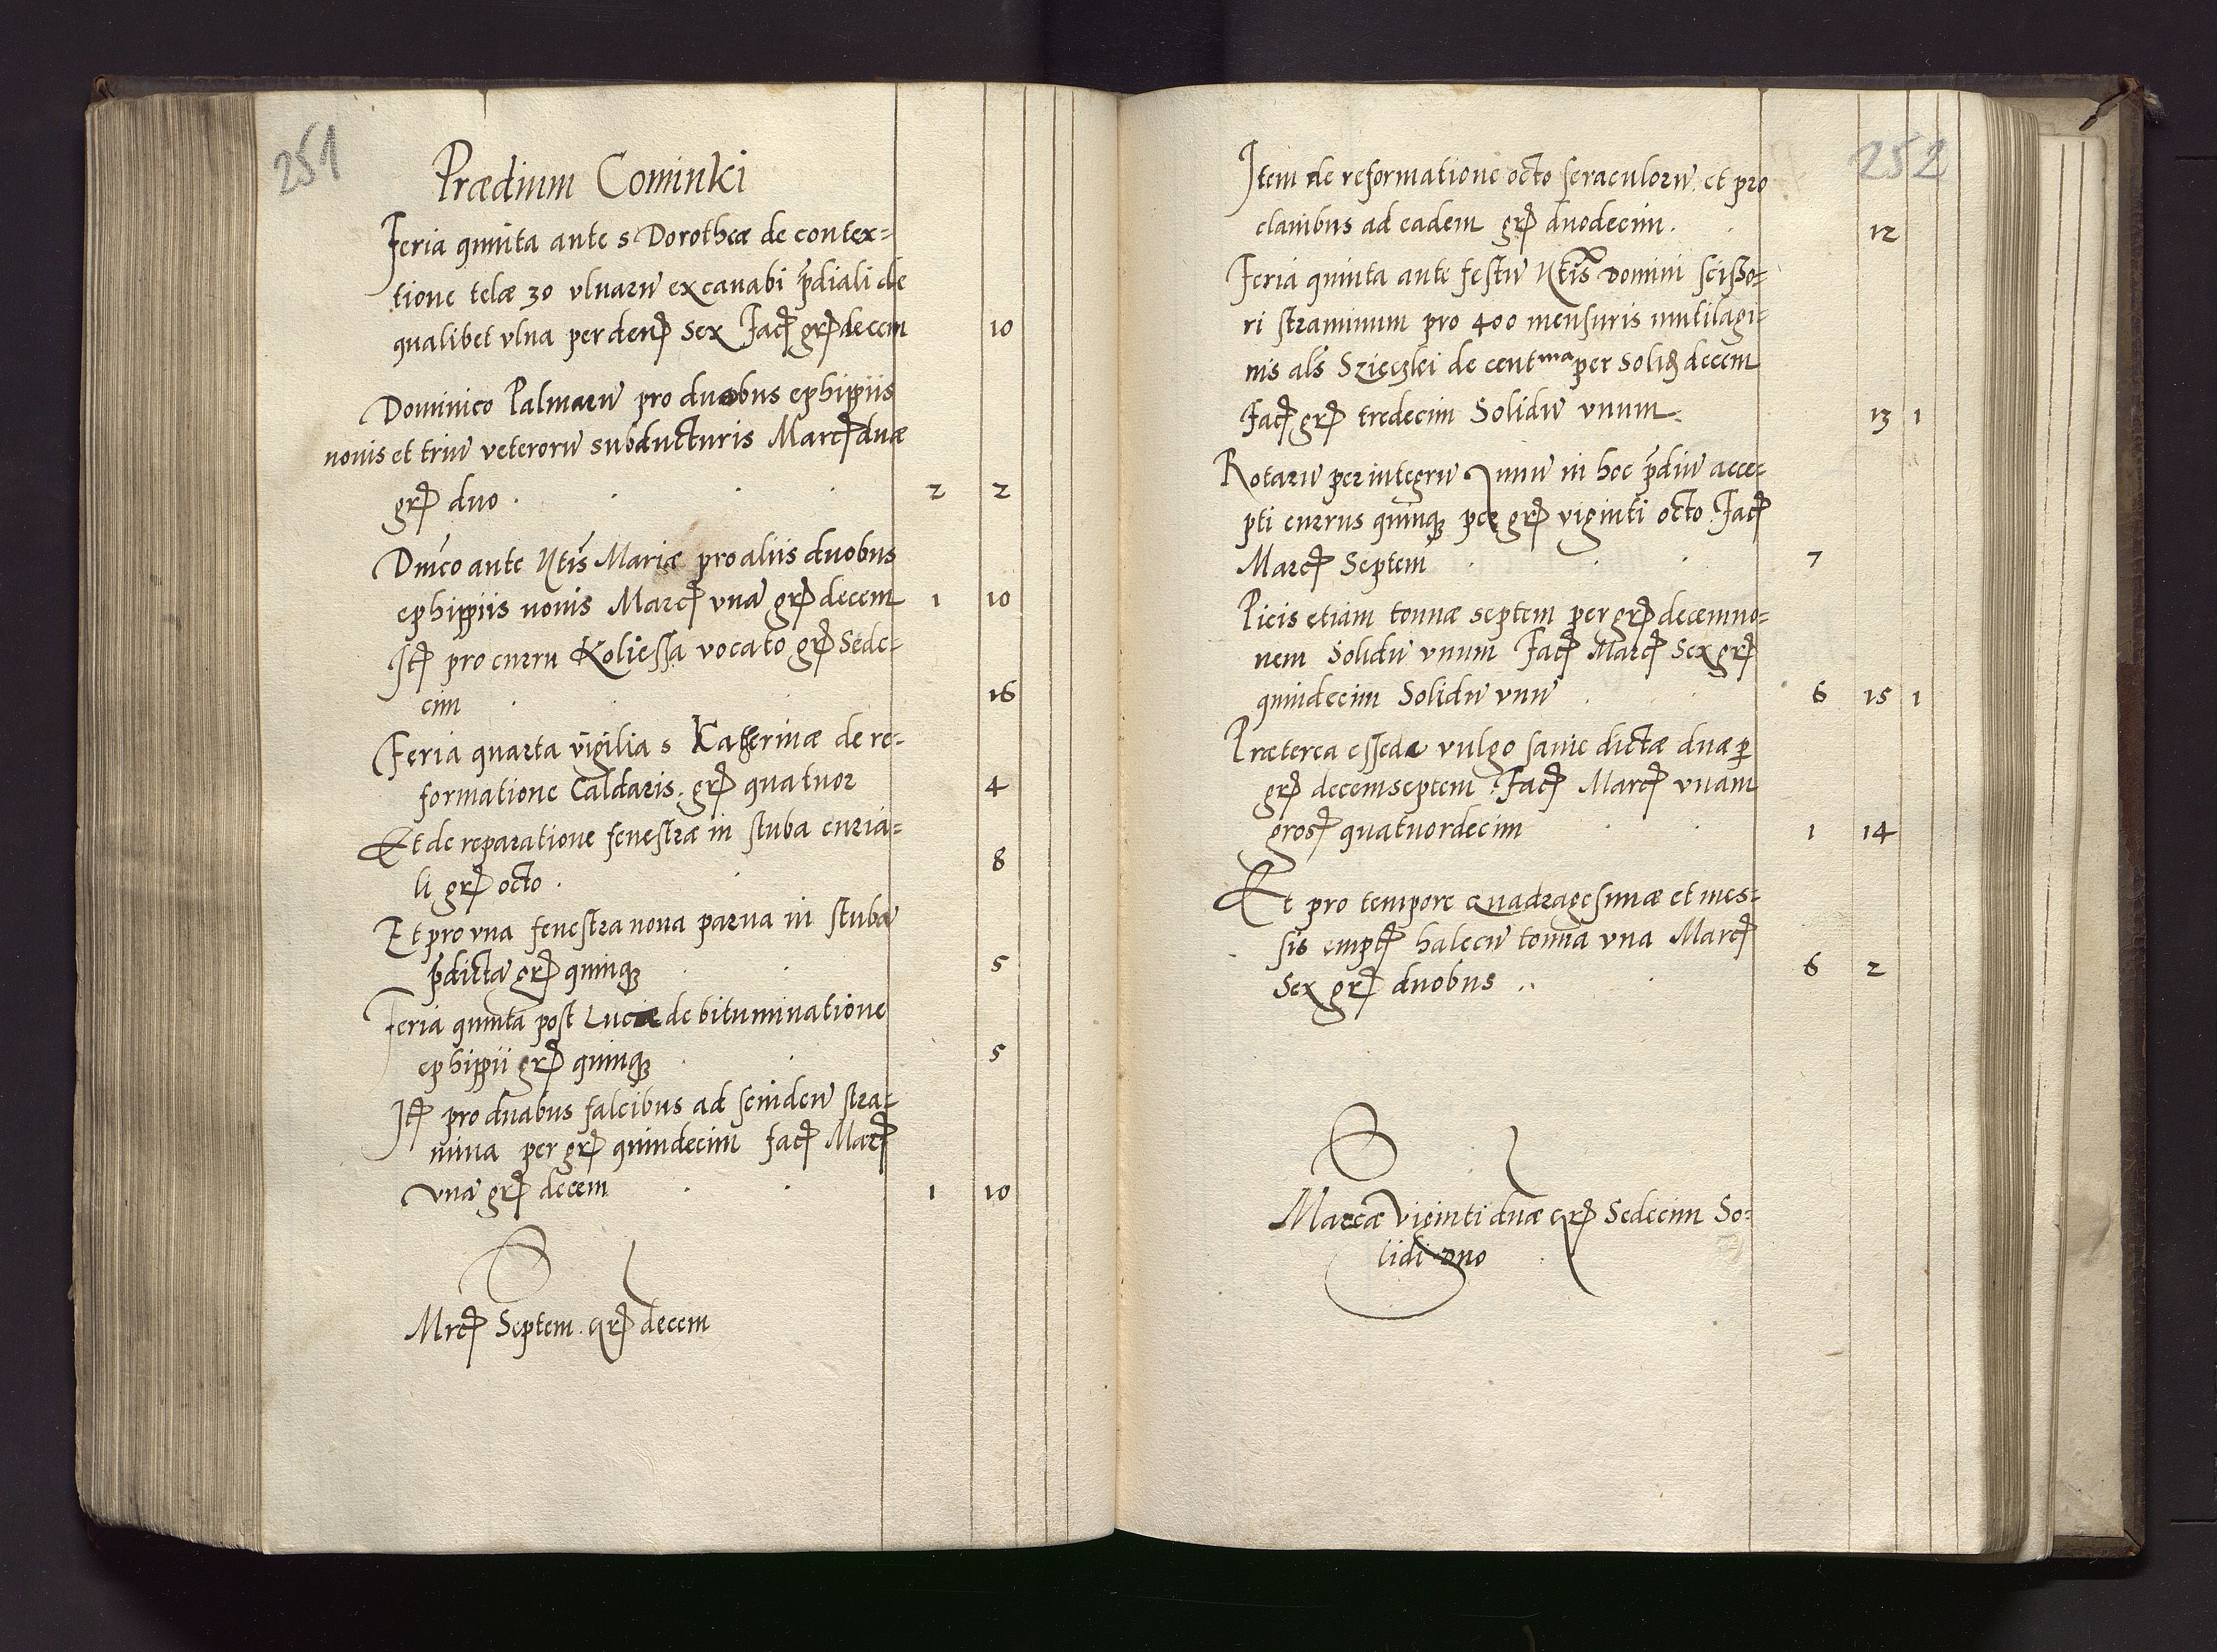 251
Prædium Cominki
Feria quinta ante s Dorotheæ de contex=
tione telæ 30 vlnarū ex canabi p̄diali de
qualibet vlna per denꝭ sex Facꝭ grꝭ decem 10
Dominico Palmarū pro duobus ephippiis
nouis et triū veterorū subducturis Marcꝭ duæ
grꝭ duo . 2 2
Dnīco ante Ntīs Mariæ pro aliis duobus
ephippiis nouis Marcꝭ vnā grꝭ decem 1 10
Itꝭ pro curru Koliessa vocato grꝭ Sede=
cim 16
Feria quarta vigilia s Katherinæ de re=
formatione Caldaris. grꝭ quatuor 4
Et de reparatione fenestræ in stuba curia=
li grꝭ octo . 8
Et pro vna fenestra noua parua in stuba
p̄dicta grꝭ quinqꝫ 5
Feria quinta post Luciæ de bituminatione
ephippii grꝭ quinqꝫ 5
Itꝭ pro duabus falcibus ad scindēn stra=
mina per grꝭ quindecim facꝭ Marcꝭ
vnā grꝭ decem 1 10
Mrcꝭ Septem . grꝭ decem
252
Item de reformatione octo seraculorū et pro
clauibus ad eadem grꝭ duodecim . 12
Feria quinta ante festū Ntīs Domini scisso=
ri straminum pro 400 mensuris mutilagi=
nis als Szieczki de centma per Solid decem
Facꝭ grꝭ tredecim Solidū vnum . 13 1
Rotarū per integrū Annū in hoc p̄diū acce=
pti currus quinqꝫ per grꝭ viginti octo Facꝭ
Marcꝭ Septem 7
Picis etiam tonnæ septem per grꝭ decemno=
uem Solidū vnum Facꝭ Marcꝭ Sex grꝭ
quindecim Solidū vnū 6 15 1
Præterea essedæ vulgo sanie dictæ duæ ꝑ
grꝭ decemseptem Facꝭ Marcꝭ vnam
grosꝭ quatuordecim 1 14
Et pro tempore quadragesimæ et mes=
sis emptꝭ halecū tonna vna Marcꝭ
Sex grꝭ duobus .. 6 2
Marcæ viginti duæ grꝭ Sedecim So=
lidi duo